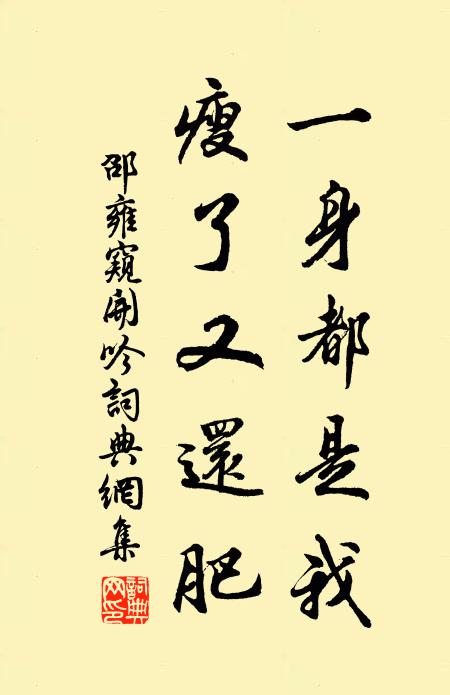 一身都是我
瘦了又還肥
邵雍窺開吟詞典網集
詞典網印